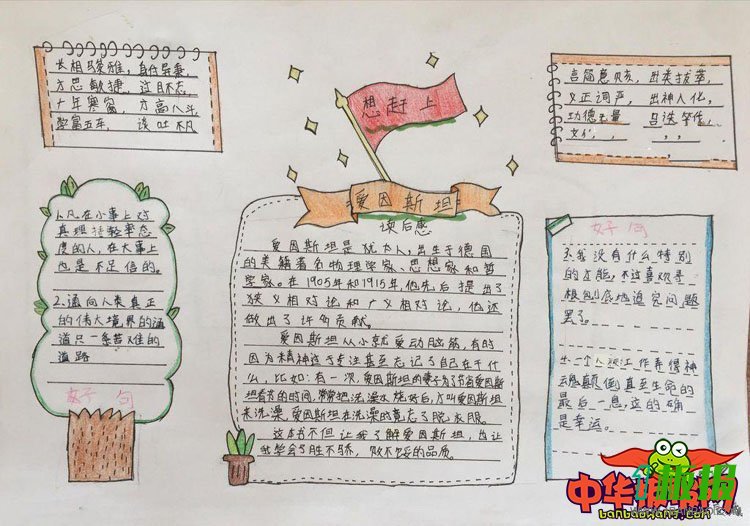 长相文雅，自任导乘，
才思敏捷，过目不忘，
十年寒窗 才高八斗，
学富五车， 谈吐不凡
言简意赅，出类拔萃，
义正词严， 出神入化，
功德无量
想赶上
爱因斯坦
读后感
爱因斯坦是犹太人，出生于德国
的美籍著名物理学家、思想家和哲
学家。在1905年和1915年，他先后提出了
狭义相对论和广义相对论，他还
做出了许多贡献。
爱因斯坦从小就爱动脑筋，有时
因为精神过于专注甚至忘记了自己在干什
么，比如：有一次，爱因斯坦的妻子为了节省爱因斯
坦看书的时间，常常把洗澡水烧好后，才叫爱因斯坦
来洗澡，爱因斯坦在洗澡时竟忘了脱衣服。
这本书不但让我了解爱因斯坦，也让
我学会了胜不骄，败不馁的品质。
1.凡在小事上对
真理持轻率态
度的人，在大事上
也是不足信的。
2.通向人类真正
的伟大境界的通
道只一条苦难的
道路
好子 句
好 句
3.我没有什么特别
的才能，不过喜欢寻
根刨底地追究问题
罢了。
一个人
魂颠倒，直至生命的
最后一息，这的确
是幸运。
中华
banbaowang.com